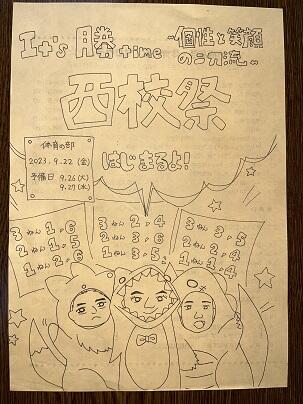 It's 勝 time
~個性と笑顔
の二刀流~
西校祭
体育の部
2023.9.22(金)
予備日 9.26(火)
9.27(水)
はじまるよ!
3ねん 1,6
2ねん 1,5
1ねん 2,6
3ねん 2,4
2ねん 3,6
1ねん 3,5
3ねん 3,5
2ねん 2,4
1ねん 1,4